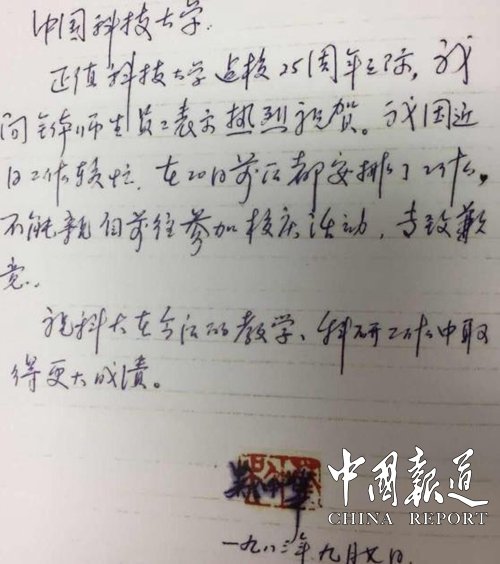 中国科技大学:
正值科技大学建校25周年之际,我
向全体师生员工表示热烈祝贺。我因近
日工作较忙,在20日前后都安排了工作,
不能亲自前往参加校庆活动,专致歉
意。
祝科大在今后的教学、科研工作中取
得更大成绩。
一九八三年九月廿日
中国報道
CHINA REPORT